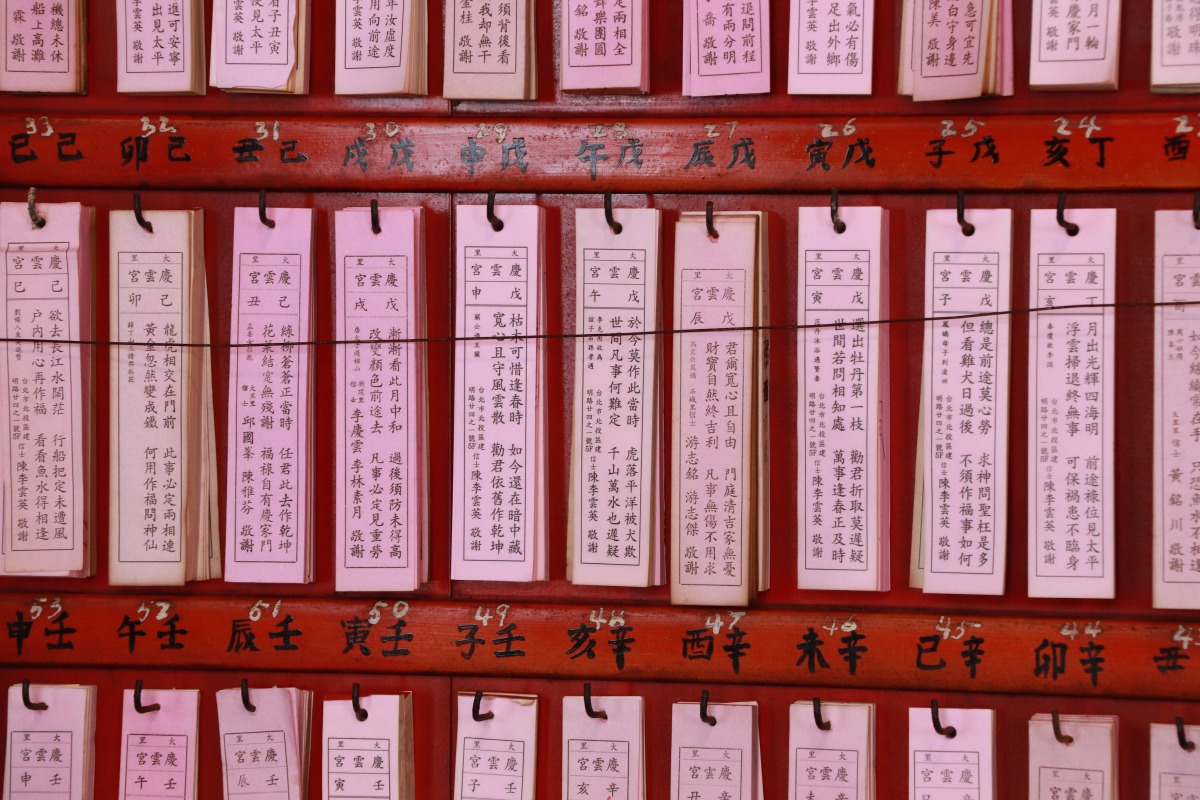 月一輪
慶家門
敬謝
急可宜先
白守身邊
陳美 敬謝
氣必有傷
足出外鄉
李雲英 敬謝
退問前程
有兩分明
喬 敬謝
定兩相全
舞樂團圓
銘 敬謝
須背後看
我却無干
金桂 敬謝
年汝虛度
用向前途
李雲英 敬謝
看子丑寅
便見太平
李雲英 敬謝
進可安寧
出見太平
雲英 敬謝
機總未休
船上高灘
霖 敬謝
24 丁亥
25 戊子
26 戊寅
27 戊辰
28 戊午
29 戊申
30 戊戌
31 己丑
32 己卯
33 己巳
大里
慶雲宮
丁亥
月出光輝四海明 前途祿位見太平
浮雲掃退終無事 可保禍患不臨身
台北市北投區建
明路廿四之一號5F 信士 陳李雲英 敬謝
大里
慶雲宮
戊子
總是前途莫心勞 求神問聖枉是多
但看雞犬日過後 不須作福事如何
台北市北投區建
明路廿四之一號5F 信士 陳李雲英 敬謝
大里
慶雲宮
戊寅
選出牡丹第一枝 勸君折取莫遲疑
世間若問相知處 萬事逢春正及時
台北市北投區建
明路廿四之一號5F 信士 陳李雲英 敬謝
大里
慶雲宮
戊辰
君爾寬心且自由 門庭清吉家無憂
財寶自然終吉利 凡事無傷不用求
信士 游志銘 游志傑 敬謝
大里
慶雲宮
戊午
於今莫作此當時 虎落平洋被犬欺
世間凡事何難定 千山萬水也遲疑
台北市北投區建
明路廿四之一號5F 信士 陳李雲英 敬謝
大里
慶雲宮
戊申
枯木可惜逢春時 如今還在暗中藏
寬心且守風雲散 勸君依舊作乾坤
台北市北投區建
明路廿四之一號5F 信士 陳李雲英 敬謝
大里
慶雲宮
戊戌
漸漸看此月中和 過後須防未得高
改變顏色前途去 凡事必定見重勞
信士 李慶雲 李林素月 敬謝
大里
慶雲宮
己丑
綠柳蒼蒼正當時 任君此去作乾坤
花菓結實無殘謝 福祿自有慶家門
大里里
信士 邱國峯 陳雅芬 敬謝
大里
慶雲宮
己卯
龍虎相交在門前 此事必定兩相連
黃金忽然變成鐵 何用作福問神仙
大里
慶雲宮
己巳
欲去長江水闊茫 行船把定未遭風
户内用心再作福 看看魚水得相逢
台北市北投區建
明路廿四之一號5F 信士 陳李雲英 敬謝
44 辛卯
45 辛巳
46 辛未
47 辛酉
48 辛亥
49 壬子
50 壬寅
51 壬辰
52 壬午
53 壬申
大里
慶雲宮
大里
慶雲宮
大里
慶雲宮
大里
慶雲宮
大里
慶雲宮
辛亥
大里
慶雲宮
壬子
大里
慶雲宮
壬寅
大里
慶雲宮
壬辰
大里
慶雲宮
壬午
大里
慶雲宮
壬申